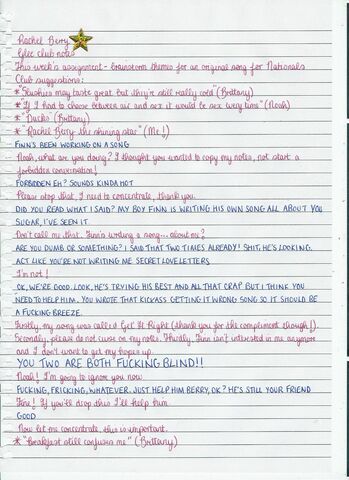 Rachel Berry
Glee club notes
This week's assignment - brainstorm themes for an original song for Nationals
Club suggestions:
* "Slushies may taste great but they're still really cold" (Brittany)
* "If I had to choose between air and sex it would be sex every time" (Noah)
* "Ducks" (Brittany)
* "Rachel Berry the shining star" (Me!)
FINN'S BEEN WORKING ON A SONG
Noah, what are you doing? I thought you wanted to copy my notes, not start a
forbidden conversation!
FORBIDDEN EH? SOUNDS KINDA HOT
Please stop that, I need to concentrate, thank you.
DID YOU READ WHAT I SAID? MY BOY FINN IS WRITING HIS OWN SONG ALL ABOUT YOU
SUGAR, I'VE SEEN IT.
Don't call me that. Finn's writing a song... about me?
ARE YOU DUMB OR SOMETHING? I SAID THAT TWO TIMES ALREADY! SHIT, HE'S LOOKING.
ACT LIKE YOU'RE NOT WRITING ME SECRET LOVE LETTERS
I'm not!
OK, WE'RE GOOD. LOOK, HE'S TRYING HIS BEST AND ALL THAT CRAP BUT I THINK YOU
NEED TO HELP HIM. YOU WROTE THAT KICKASS GETTING IT WRONG SONG SO IT SHOULD BE
A FUCKING BREEZE.
Firstly, my song was called Get It Right (thank you for the compliment though!).
Secondly, please do not curse on my notes. Thirdly, Finn isn't interested in me anymore
and I don't want to get my hopes up.
YOU TWO ARE BOTH FUCKING BLIND!!
Noah! I'm going to ignore you now
FUCKING, FRICKING, WHATEVER. JUST HELP HIM BERRY, OK? HE'S STILL YOUR FRIEND
Fine! If you'll drop this I'll help him.
GOOD
Now let me concentrate, this is important.
* "Breakfast still confuses me" (Brittany)